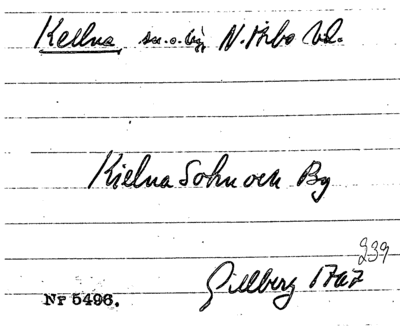 Kellna, sn. o. by, N. Åsbo hd.
Kielna Sohn och By
239
Gillberg 1767
Nr 5496.